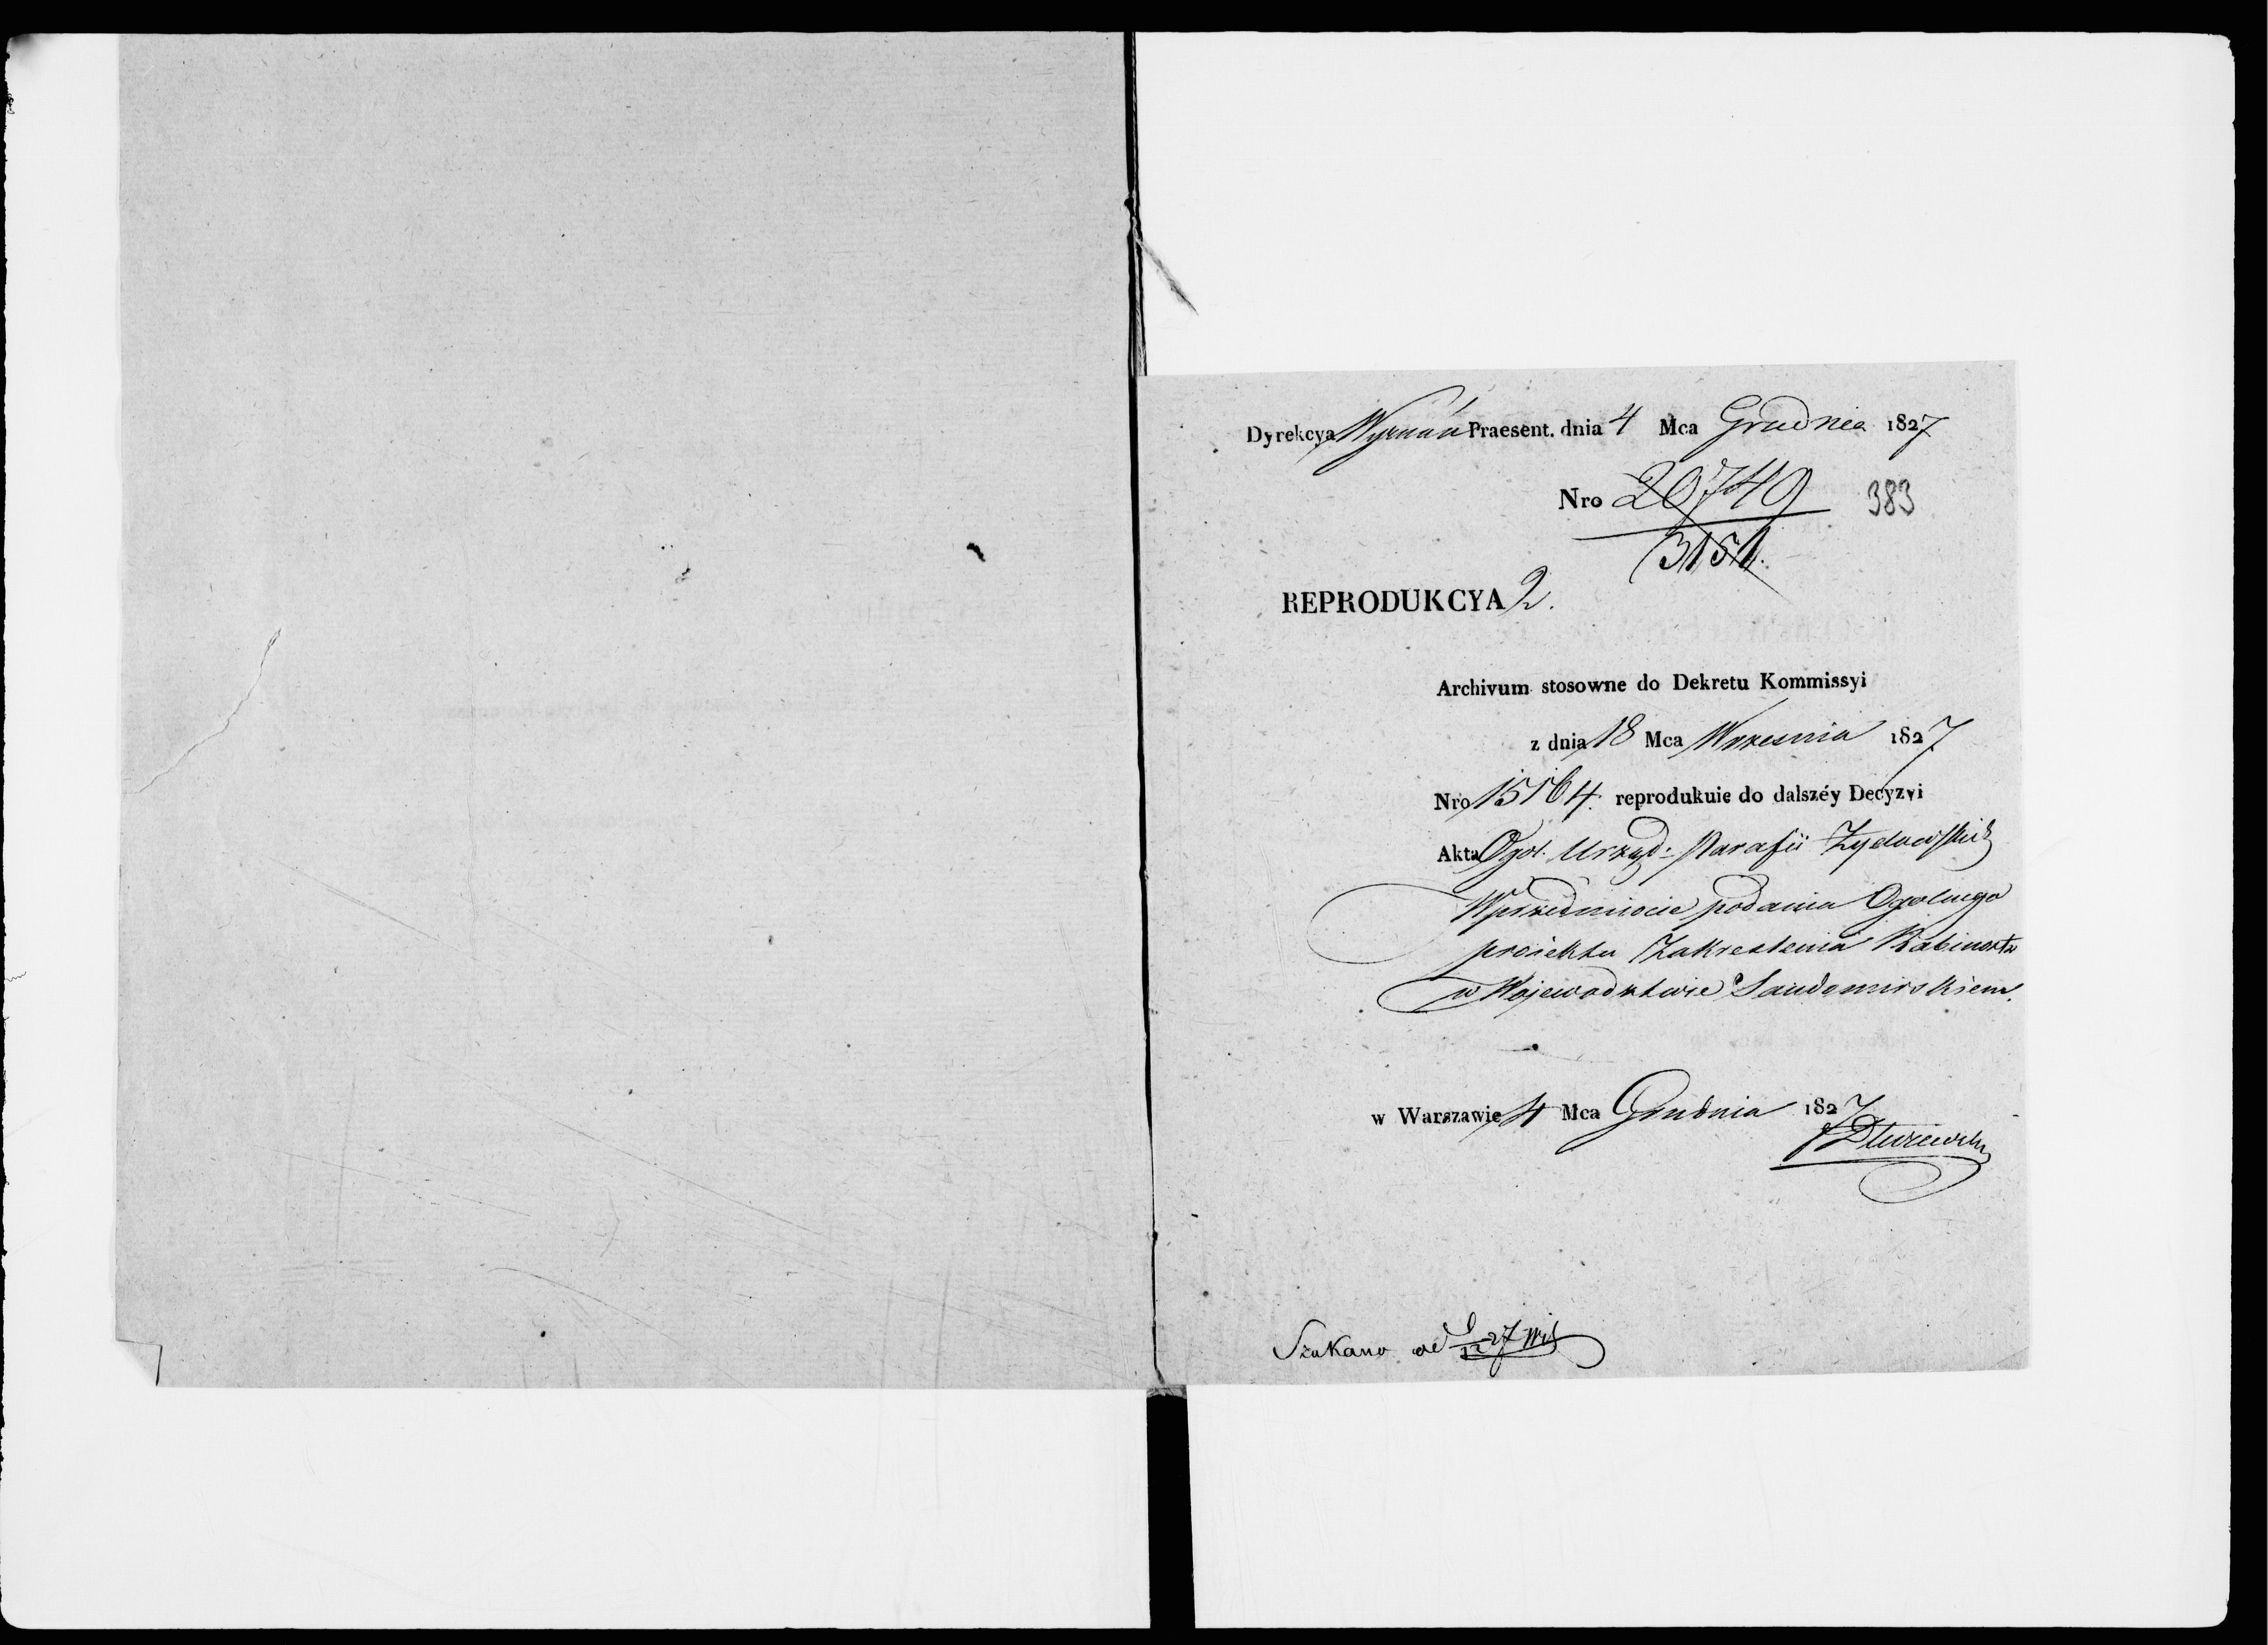 Dyrekcya Wyznań Praesent. dnia 4 Mca Grudnia 1827
Nro 20749 383
3151.
REPRODUKCYA 2.
Archivum stosowne do Dekretu Kommissyi
z dnia 18 Mca Wrzesnia 1827
Nro 15164. reprodukuie do dalszéy Decyzyi
Akta Ogol. Urząd: Parafii Zydowskich
W przedmiocie podania Ogolnego
proiektu Zakreslenia Rabinostw
w Wojewodztwie Sandomirskiem.
w Warszawie 4 Mca Grudnia 1827
Dłużewski
Szukano od 27